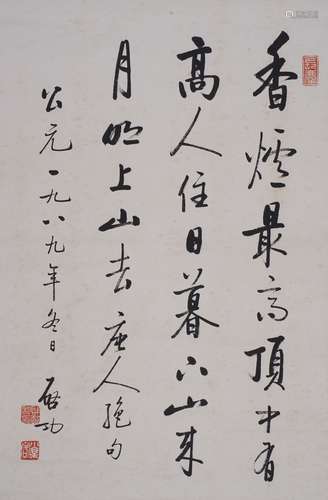 香爐最高頂中有
高人住日暮下山来
月明上山去唐人絶句
公元一九八九年冬日
啟功